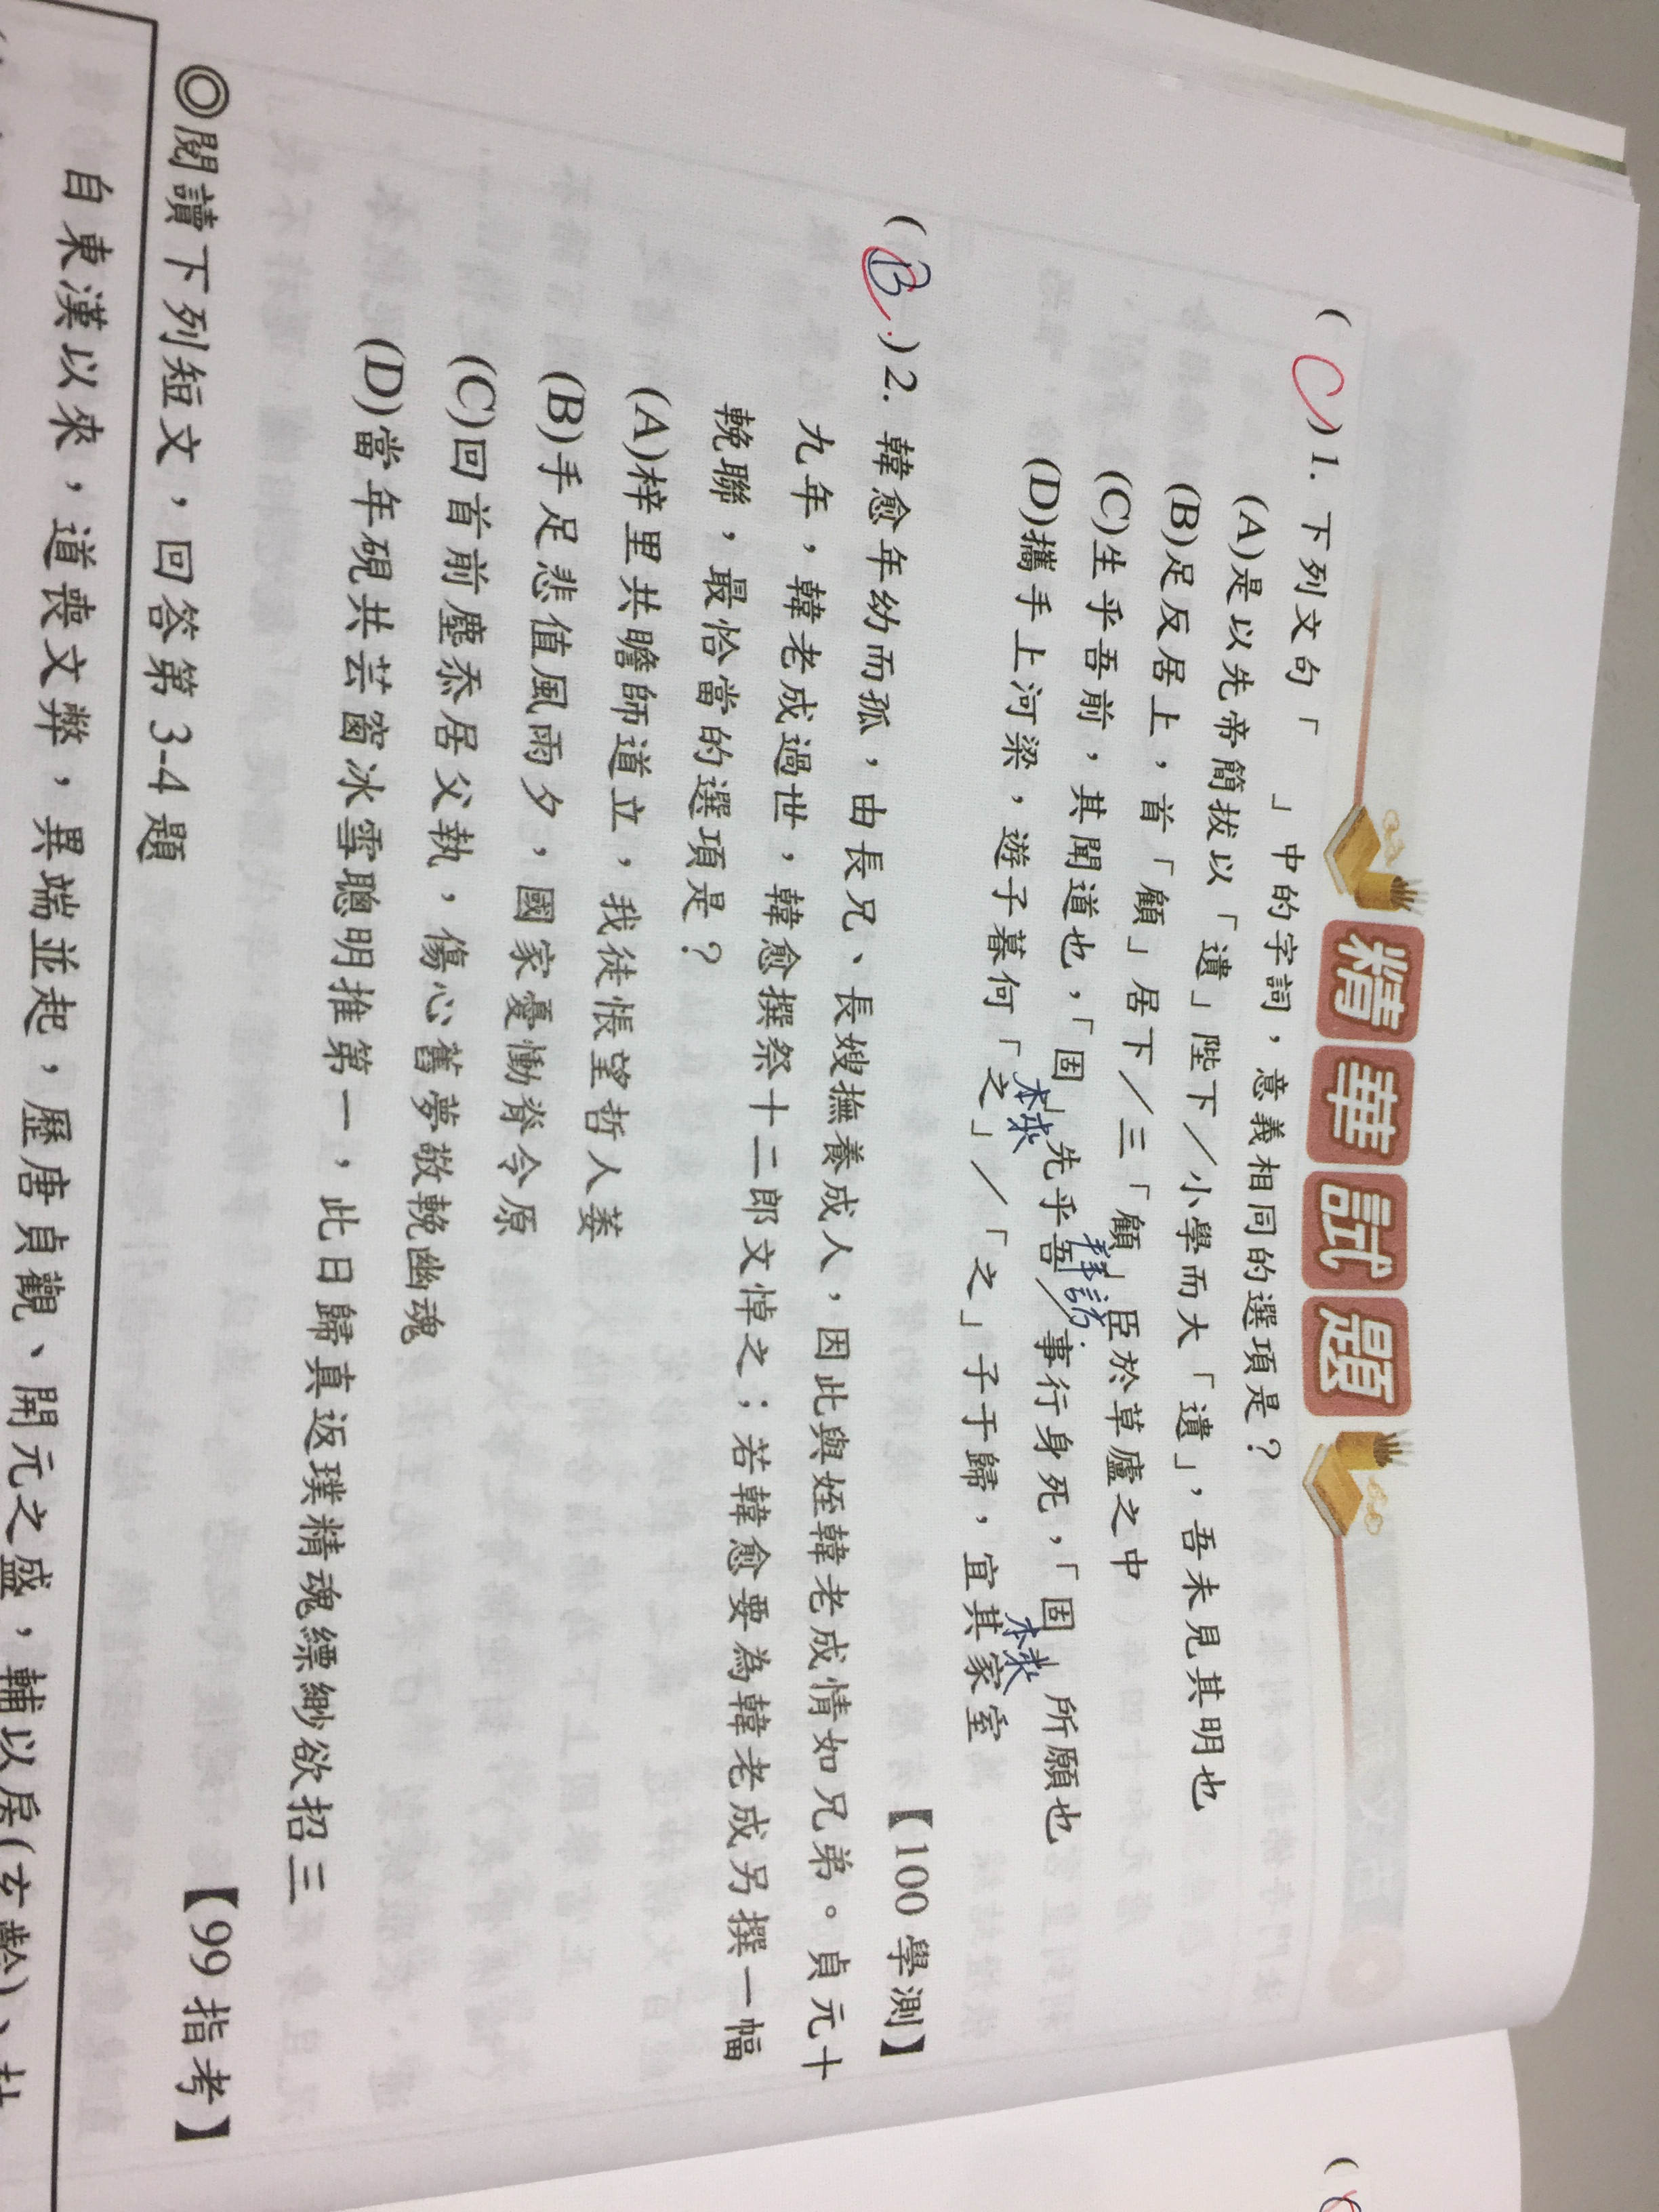 精華試題
( C )1. 下列文句「　」中的字詞，意義相同的選項是？
(A)是以先帝簡拔以「遺」陛下／小學而大「遺」，吾未見其明也
(B)足反居上，首「顧」居下／三「顧」臣於草廬之中
拜訪
(C)生乎吾前，其聞道也，「固」先乎吾／事行身死，「固」所願也
本來
本來
(D)攜手上河梁，遊子暮何「之」／「之」子于歸，宜其家室
【100 學測】
( B )2. 韓愈年幼而孤，由長兄、長嫂撫養成人，因此與姪韓老成情如兄弟。貞元十
九年，韓老成過世，韓愈撰祭十二郎文悼之；若韓愈要為韓老成另撰一幅
輓聯，最恰當的選項是？
(A)梓里共瞻師道立，我徒悵望哲人萎
(B)手足悲值風雨夕，國家憂慟脊令原
(C)回首前塵忝居父執，傷心舊夢敬輓幽魂
(D)當年硯共芸窗冰雪聰明推第一，此日歸真返璞精魂縹緲欲招三
【99 指考】
◎閱讀下列短文，回答第 3-4 題
自東漢以來，道喪文弊，異端並起，歷唐貞觀、開元之盛，輔以房(玄齡)、杜